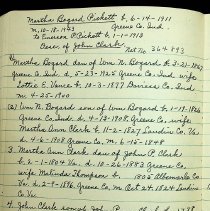 Martha Bogard Pickett b. 6-14-1911
m. 10-18-1943 Greene Co. Ind
To Emerson O. Pickett b. 1-1-1913
Cousin of John Clark
Nat No 364893
Martha Bogard dau of Wm N. Bogard b. 3-21-1867
Greene Co. Ind d. 5-23-1925 Greene Co, Ind wife
Lottie E. Vance b. 10-3-1877 Daviess Co, Ind
m. 4-25-1900
(2) Wm N. Bogard son of Wm Bogard b. 1-13-1826
Greene Co. Ind d. 4-13-1908 Greene Co. wife
Martha Ann Clark b. 11-2-1827 Loudin Co. Va
d. 4-6-1908 Greene Co. m. 6-15-1848
3. Martha Ann Clark dau of John A. Clark
b. 2-1-1804 Va. d. 10-26-1883 Greene Co.
wife Matinda Thompson b. 1805 Albemarle Co.
Va d. 2-9-1896 Greene Co, m Oct 24-1824 Loudin
Co. Va
4. John Clark son of